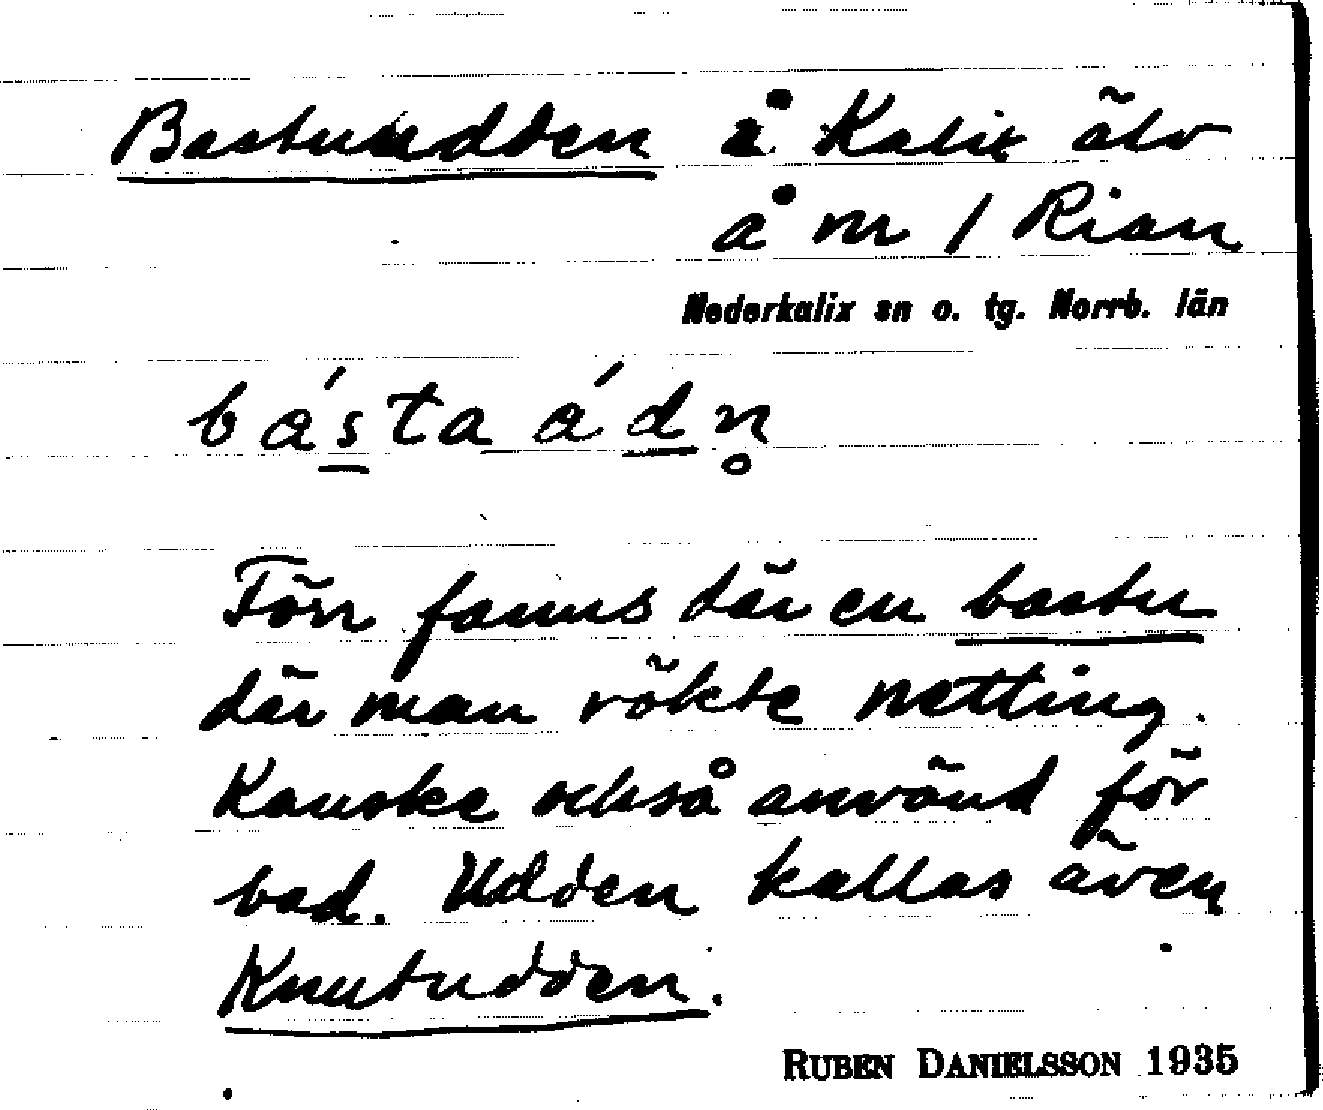 Bastuudden å Kalix älv
å nr 1 Rian
Nederkalix sn o. tg. Norrb. län
bás̲ta ád̲n̥
Förr fanns där en bastu
där man rökte nätting.
Kanske också använd för
bad. Udden kallas även
Knutudden.
RUBEN DANIELSSON 1935